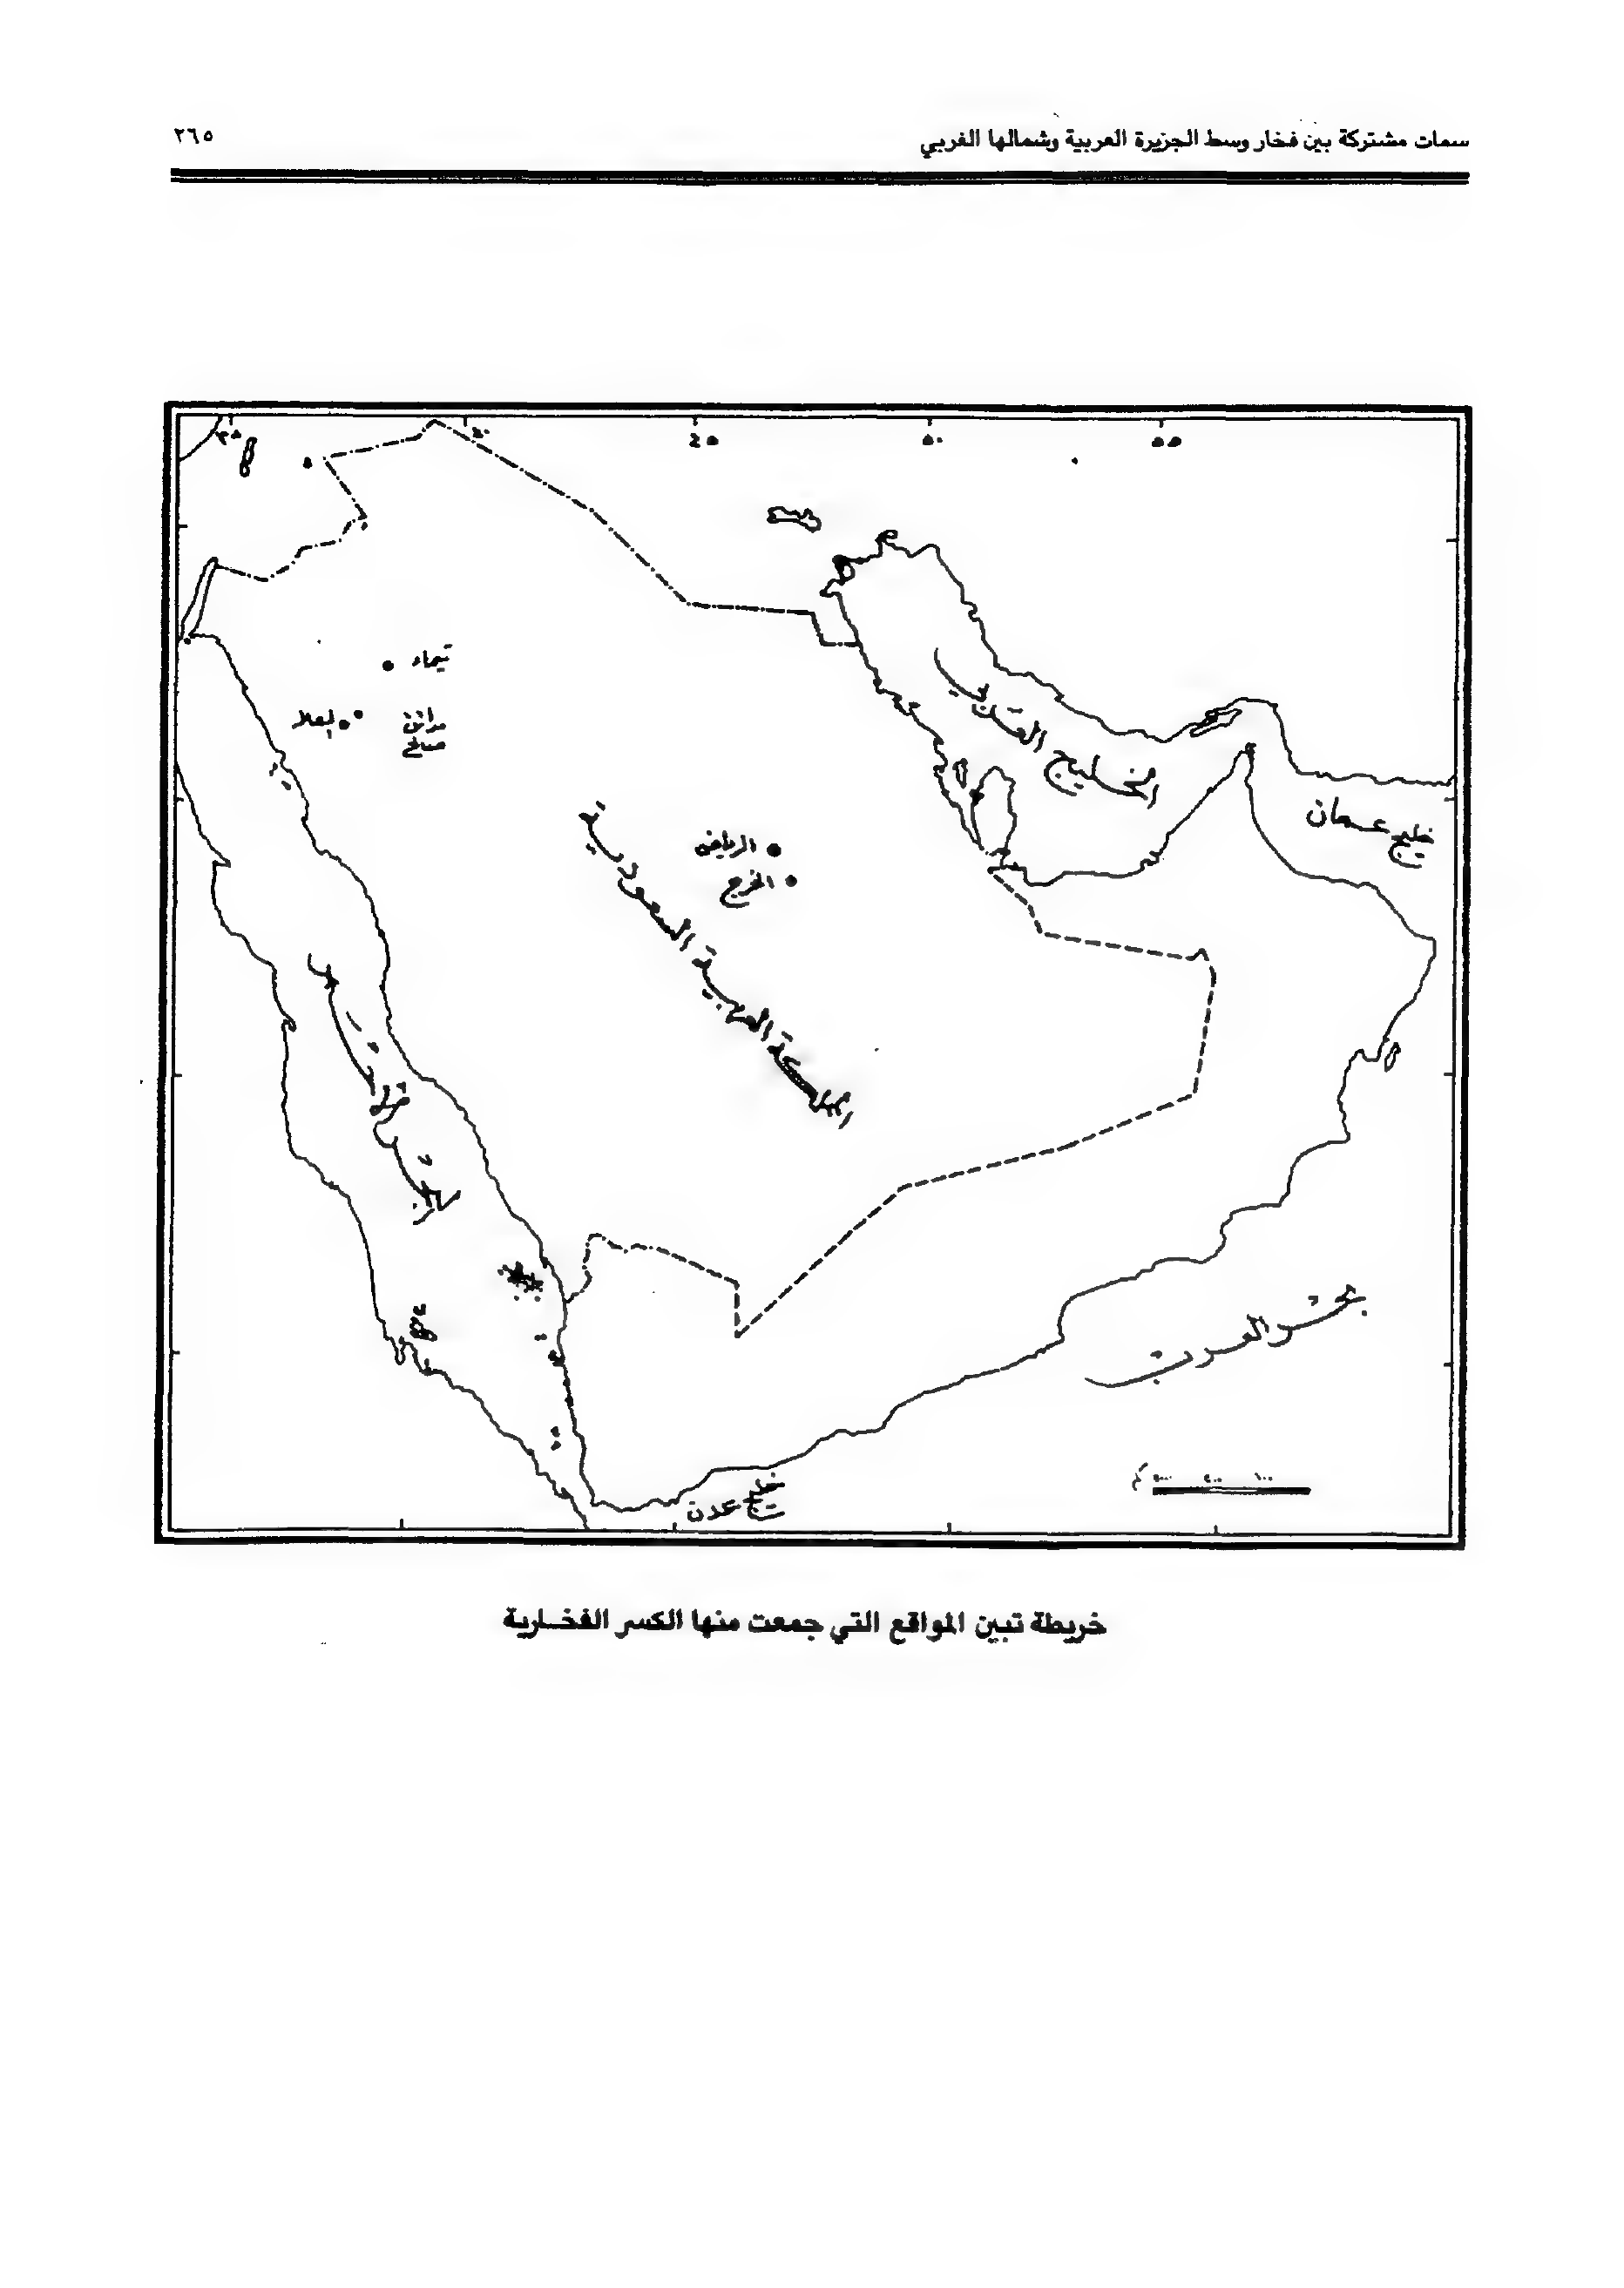 سمات مشتركة بين فخار وسط الجزيرة العربية وشمالها الغربي
٢٦٥
٣٥
٤٠
٤٥
٥٠
٥٥
تيماء
مدائن
صالح
العلا
الرياض
الخرج
المملكة العربية السعودية
الخليج العربي
خليج
عمان
البحر الأحمر
بحر العرب
خليج
عدن
خريطة تبين المواقع التي جمعت منها الكسر الفخارية